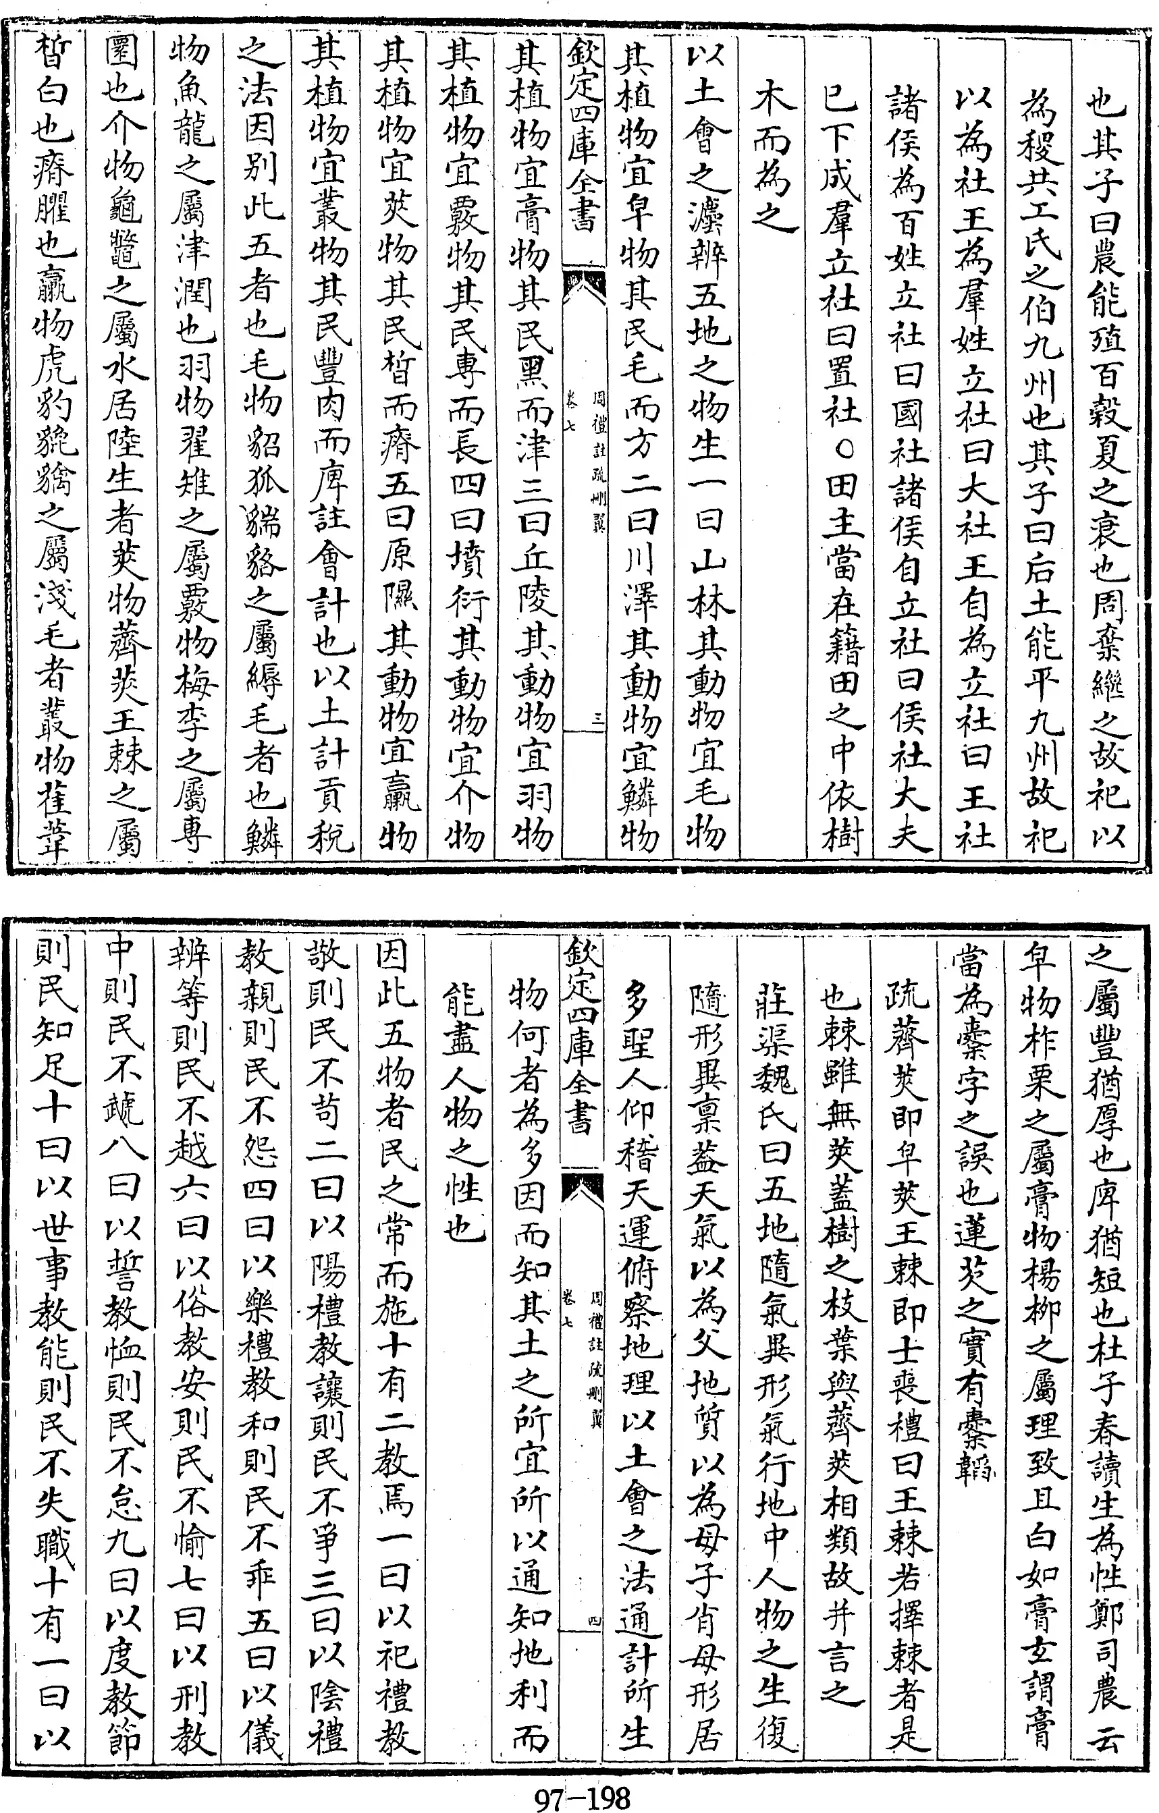 也其子曰農能殖百穀夏之衰也周棄繼之故祀以
為稷共工氏之伯九州也其子曰后土能平九州故祀
以為社王為羣姓立社曰大社王自為立社曰王社
諸侯為百姓立社曰國社諸侯自立社曰侯社大夫
已下成羣立社曰置社○田主當在籍田之中依樹
木而為之
以土會之灋辨五地之物生一曰山林其動物宜毛物
其植物宜皁物其民毛而方二曰川澤其動物宜鱗物
欽定四庫全書
周禮註疏刪翼
卷七
三
其植物宜膏物其民黑而津三曰丘陵其動物宜羽物
其植物宜覈物其民專而長四曰墳衍其動物宜介物
其植物宜莢物其民晳而瘠五曰原隰其動物宜臝物
其植物宜叢物其民豐肉而庳註會計也以土計貢稅
之法因别此五者也毛物貂狐貒貉之屬縟毛者也鱗
物魚龍之屬津潤也羽物翟雉之屬覈物梅李之屬專
圜也介物龜鼈之屬水居陸生者莢物薺莢王棘之屬
晳白也瘠臞也臝物虎豹貔貐之屬淺毛者叢物萑葦
之屬豐猶厚也庳猶短也杜子春讀生為性鄭司農云
皁物柞栗之屬膏物楊柳之屬理致且白如膏玄謂膏
當為櫜字之誤也蓮芡之實有櫜韜
疏薺莢即皁莢王棘即士喪禮曰王棘若擇棘者是
也棘雖無莢蓋樹之枝葉與薺莢相類故并言之
莊渠魏氏曰五地隨氣異形氣行地中人物之生復
隨形異稟葢天氣以為父地質以為母子肖母形居
多聖人仰稽天運俯察地理以土會之法通計所生
欽定四庫全書
周禮註疏刪翼
卷七
四
物何者為多因而知其土之所宜所以通知地利而
能盡人物之性也
因此五物者民之常而施十有二教焉一曰以祀禮教
敬則民不苟二曰以陽禮教讓則民不爭三曰以陰禮
教親則民不怨四曰以樂禮教和則民不乖五曰以儀
辨等則民不越六曰以俗教安則民不愉七曰以刑教
中則民不虣八曰以誓教恤則民不怠九曰以度教節
則民知足十曰以世事教能則民不失職十有一曰以
97-198